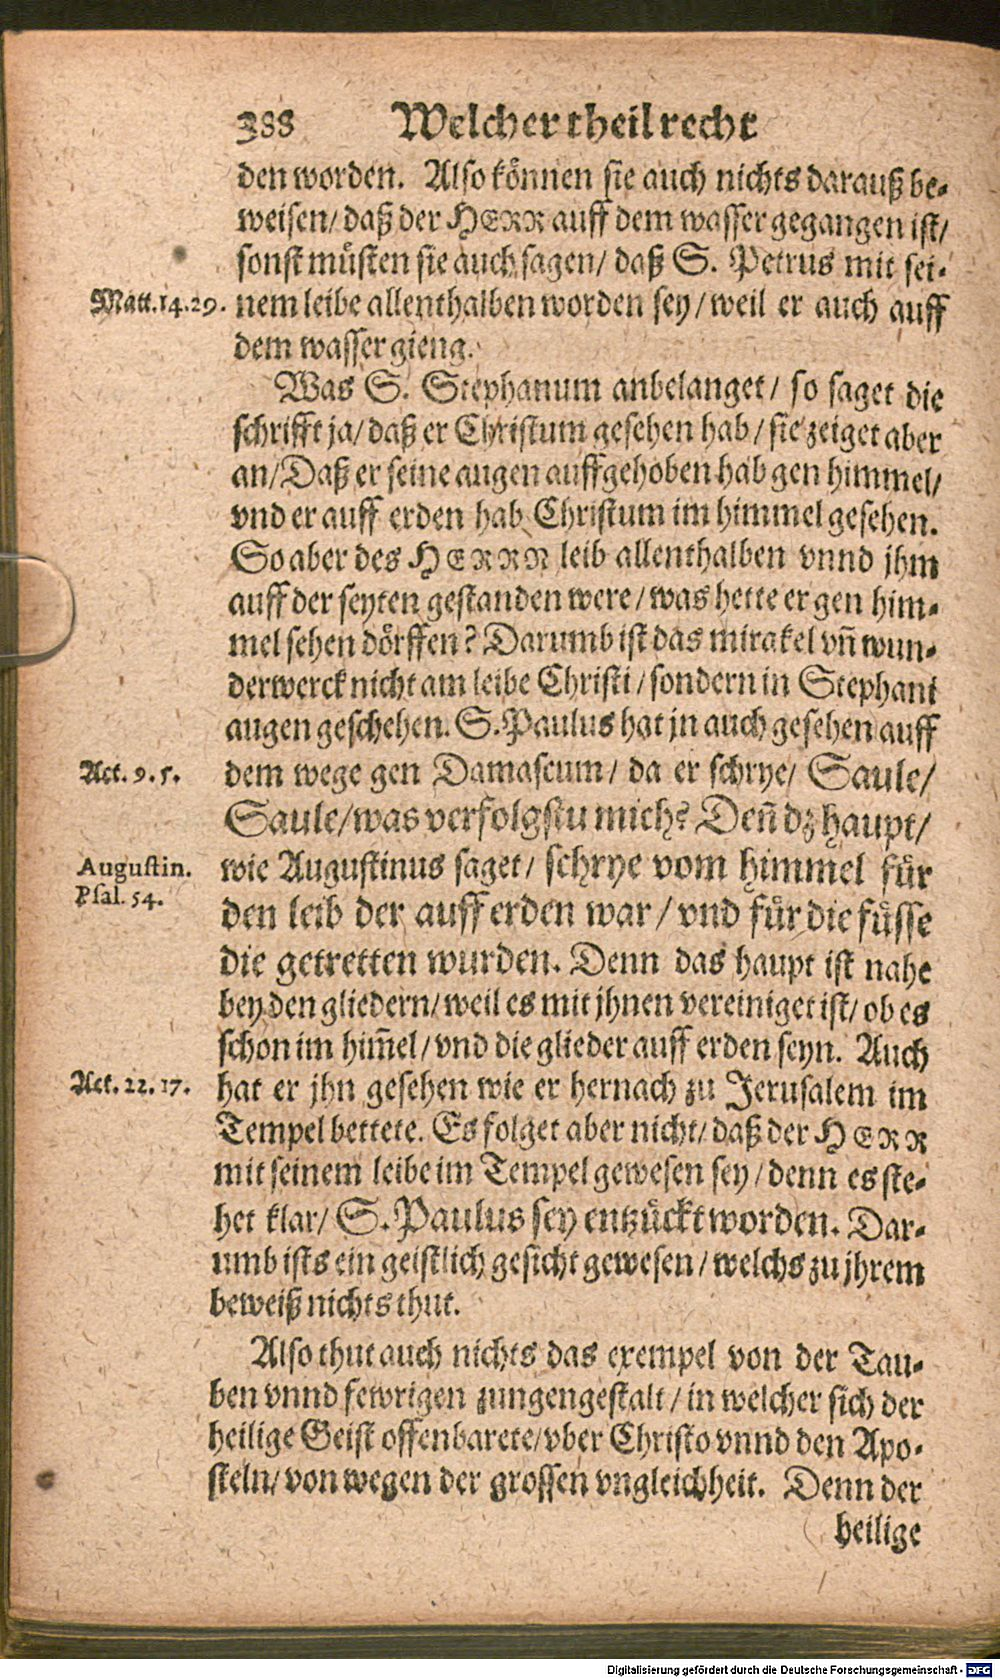 388 Welcher theil recht
den worden. Also können sie auch nichts darauß be-
weisen/ daß der HERR auff dem wasser gegangen ist/
sonst müsten sie auch sagen/ daß S. Petrus mit sei-
Matt. 14. 29. nem leibe allenthalben worden sey/ weil er auch auff
dem wasser gieng.
Was S. Stephanum anbelanget/ so saget die
schrifft ja/ daß er Christum gesehen hab/ sie zeiget aber
an/ Daß er seine augen auffgehoben hab gen himmel/
vnd er auff erden hab Christum im himmel gesehen.
So aber des HERRN leib allenthalben vnnd jhm
auff der seyten gestanden were/ was hette er gen him-
mel sehen dörffen? Darumb ist das mirakel vñ wun-
derwerck nicht am leibe Christi/ sondern in Stephani
augen geschehen. S. Paulus hat jn auch gesehen auff
Act. 9. 5. dem wege gen Damascum/ da er schrye/ Saule/
Saule/ was verfolgstu mich? Deñ dz haupt/
Augustin. wie Augustinus saget/ schrye vom himmel für
Psal. 54. den leib der auff erden war/ vnd für die füsse
die getretten wurden. Denn das haupt ist nahe
bey den gliedern/ weil es mit jhnen vereiniget ist/ ob es
schon im him̃el/ vnd die glieder auff erden seyn. Auch
Act. 22. 17. hat er jhn gesehen wie er hernach zu Jerusalem im
Tempel bettete. Es folget aber nicht/ daß der HERR
mit seinem leibe im Tempel gewesen sey/ denn es ste-
het klar/ S. Paulus sey entzückt worden. Dar-
umb ists ein geistlich gesicht gewesen/ welchs zu jhrem
beweiß nichts thut.
Also thut auch nichts das exempel von der Tau-
ben vnnd fewrigen zungengestalt/ in welcher sich der
heilige Geist offenbarete/ vber Christo vnnd den Apo-
steln/ von wegen der grossen vngleichheit. Denn der
heilige
Digitalisierung gefördert durch die Deutsche Forschungsgemeinschaft - DFG